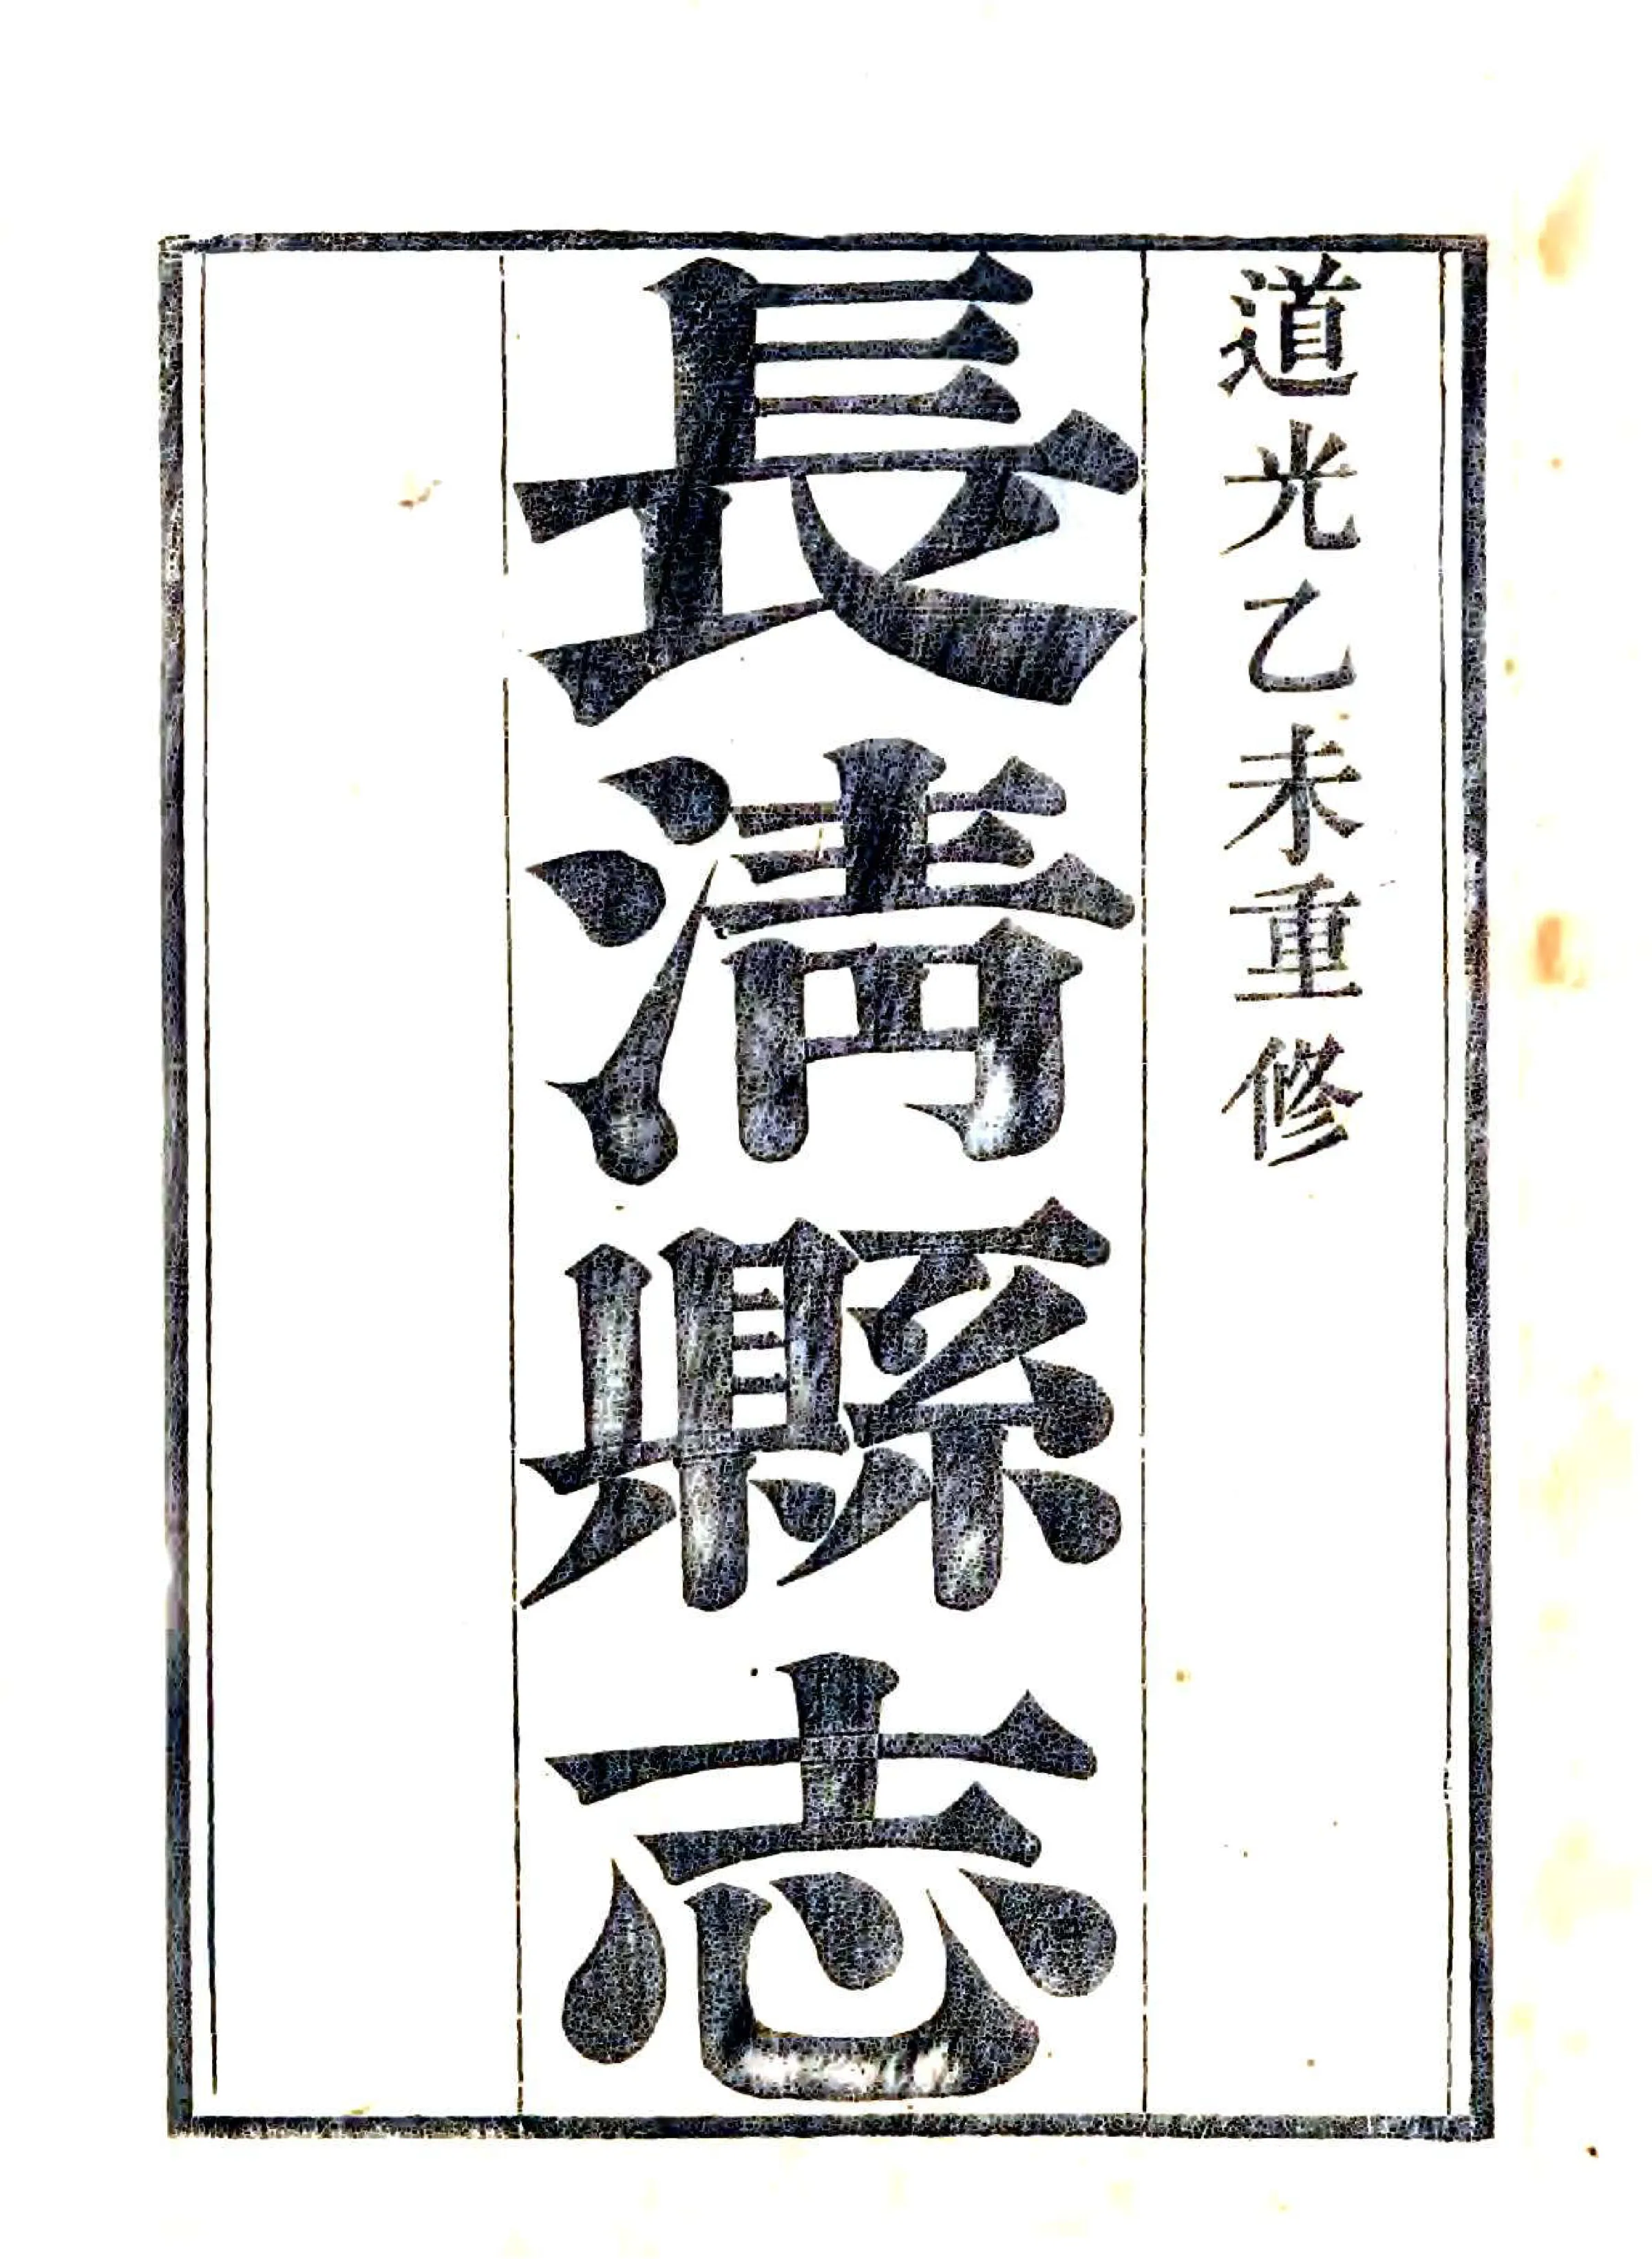 道光乙未重修
長清縣志